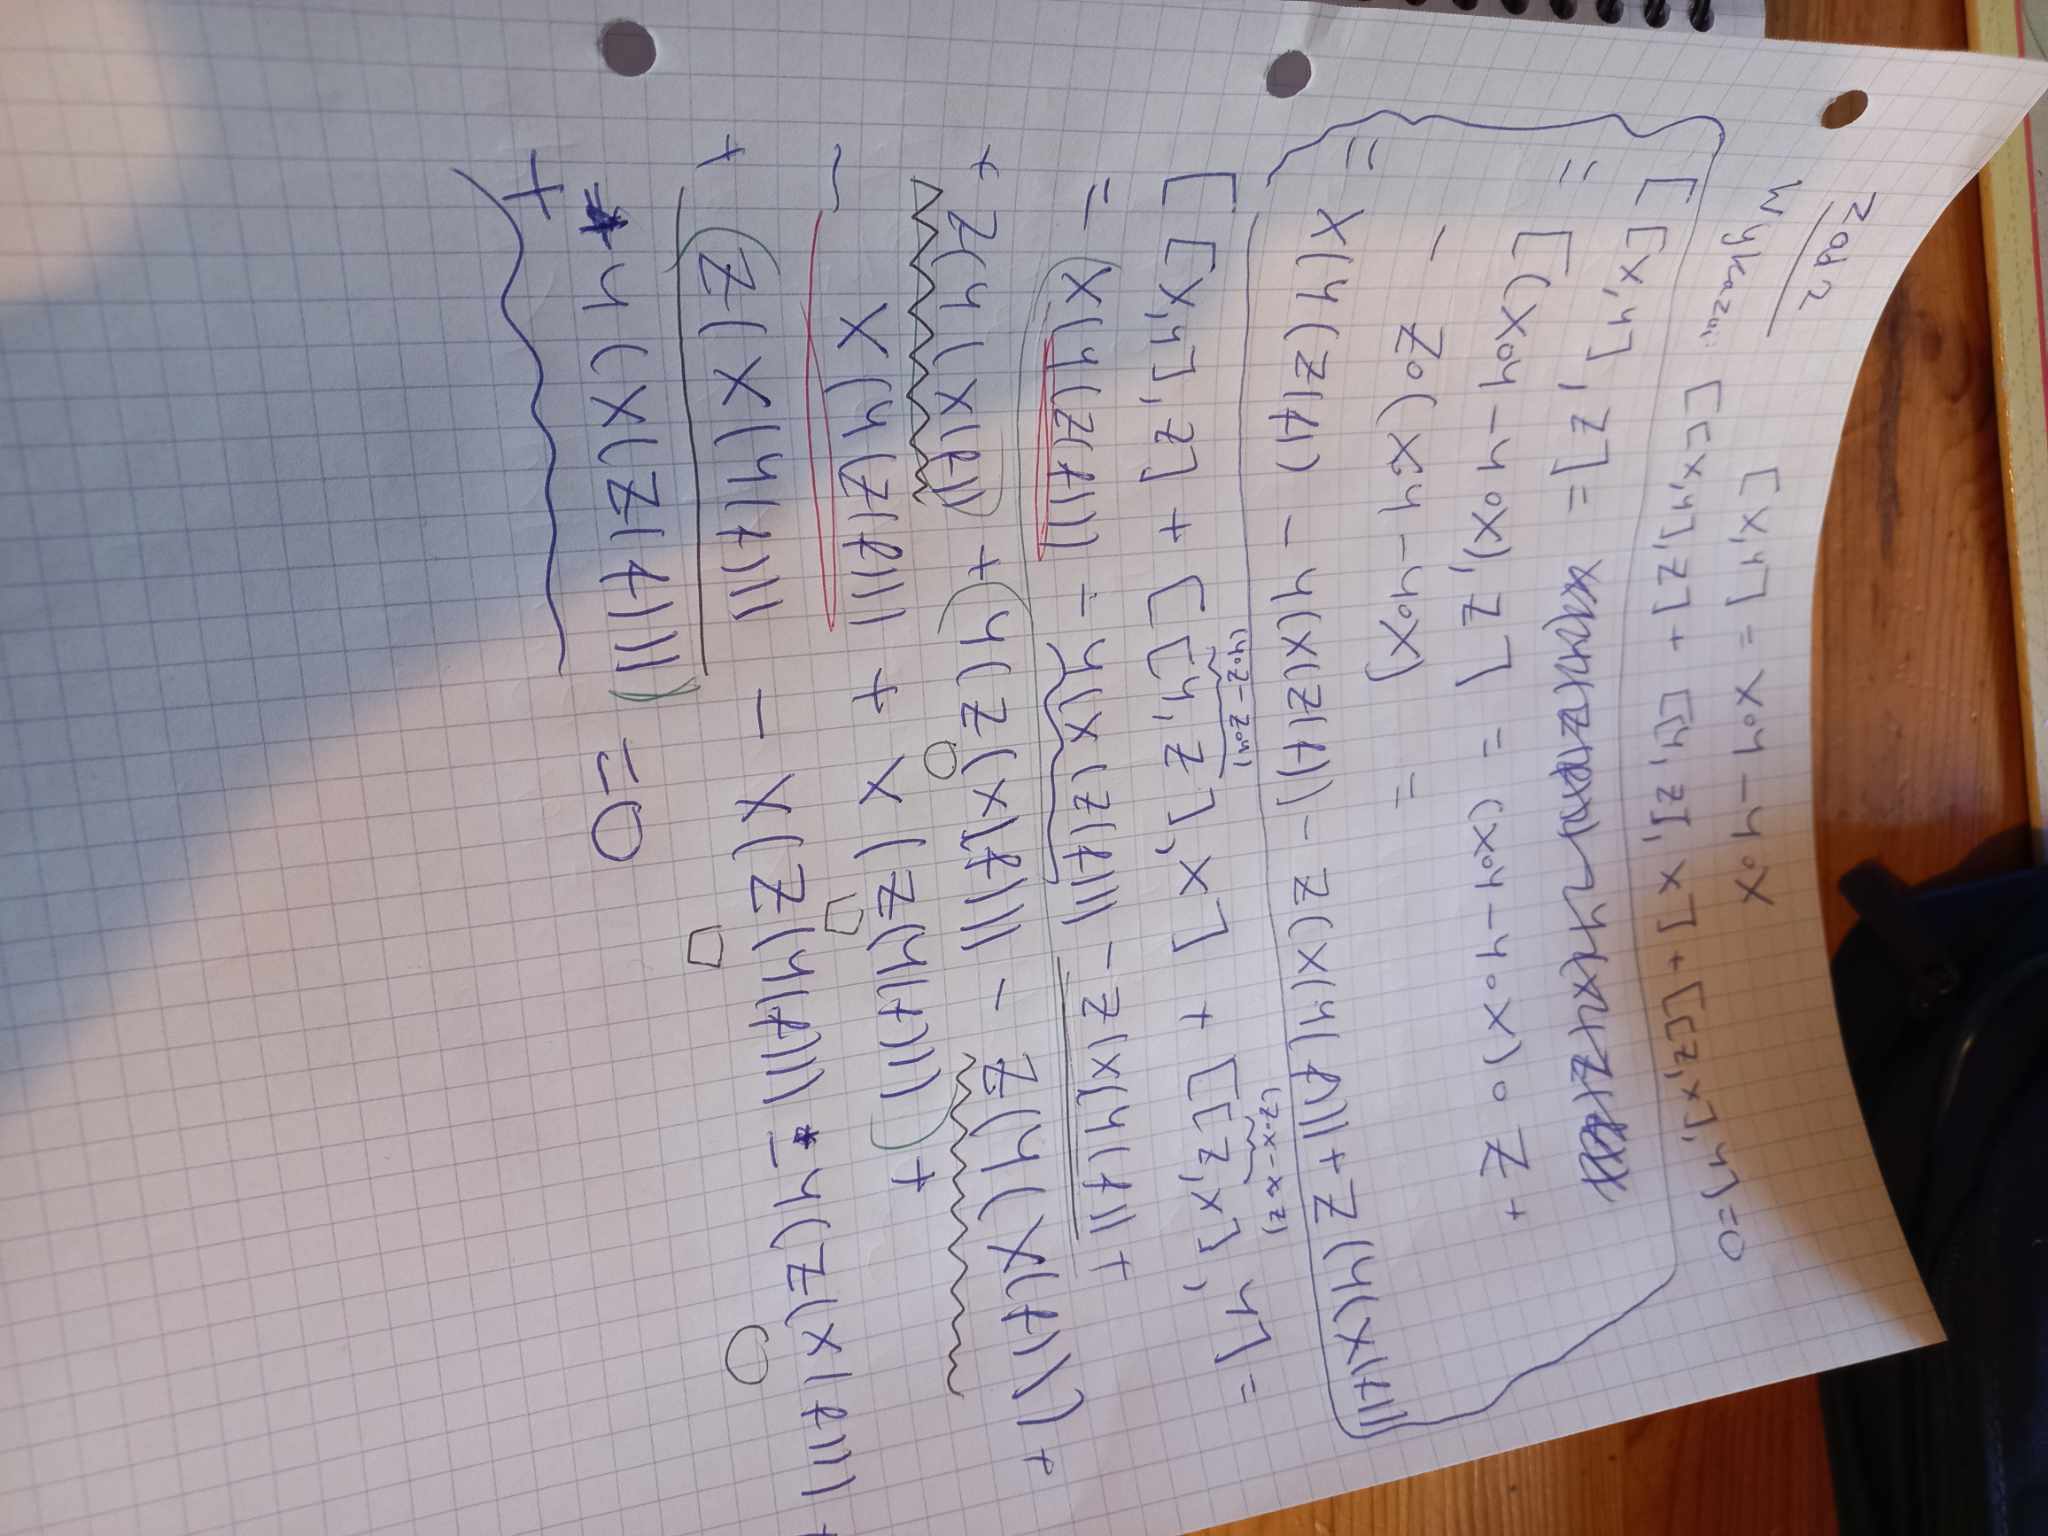 Zad 2
[X,Y] = X∘Y - Y∘X
Wykazać [[X,Y],Z] + [[Y,Z],X] + [[Z,X],Y] = 0
[[X,Y],Z] =
= [(X∘Y - Y∘X), Z] = (X∘Y - Y∘X)∘Z +
- Z∘(X∘Y - Y∘X) =
= X(Y(Z(f)) - Y(X(Z(f)) - Z(X(Y(f))) + Z(Y(X(f)))
(Y∘Z - Z∘Y) (Z∘X - X∘Z)
[[X,Y],Z] + [[Y,Z],X] + [[Z,X],Y] =
= (X(Y(Z(f))) - Y(X(Z(f))) - Z(X(Y(f)) +
+ Z(Y(X(f))) + (Y(Z(X(f))) - Z(Y(X(f))) +
- X(Y(Z(f))) + X(Z(Y(f)))) +
+ (Z(X(Y(f))) - X(Z(Y(f))) - Y(Z(X(f))) +
+ Y(X(Z(f)))) = 0